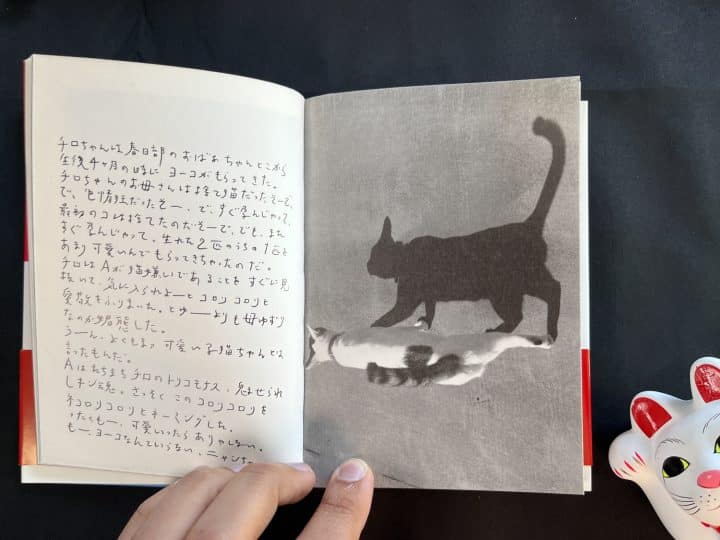 チロちゃんは春日部のおばあちゃんとこから
生後4ヶ月の時に ヨーコがもらってきた。
チロちゃんのお母さんは捨て猫だったそーで、
で、色情狂だったそー、で、すぐ孕んじゃって、
最初のコは捨てたのだそーで、でも、また
すぐ孕んじゃって、生れた2匹のうちの1匹を
あまり可愛いんでもらってきちゃったのだ。
チロはAが猫嫌いであることをすぐに見
抜いて、気に入られよーとコロリコロリと
愛敬をふりまいた。とゆーよりも母ゆずり
なのか媚態した。
うーん、よくもまァ可愛い子猫ちゃんとは
言ったもんだ。
Aはたちまちチロのトリコモナス、魅せられ
しチン魂。さっそくこのコロリコロリを
ネコロリコロリとネーミングした。
ったくもー、可愛いったらありゃしない。
もー、ヨーコなんていらない、ニャンち